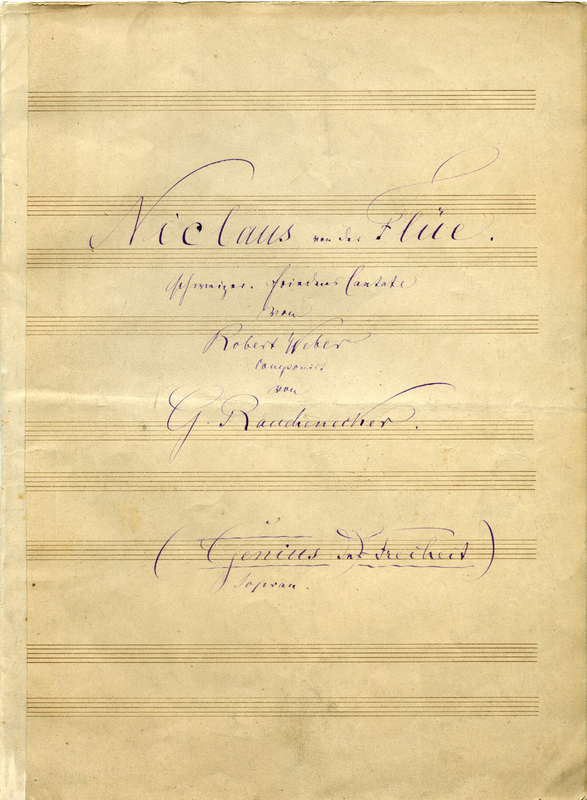 Niclaus von der Flüe.
schweizer. Friedens Cantate
von
Robert Weber
Componirt
von
G. Rauchenecker.
(Genius der Freiheit)
Sopran.